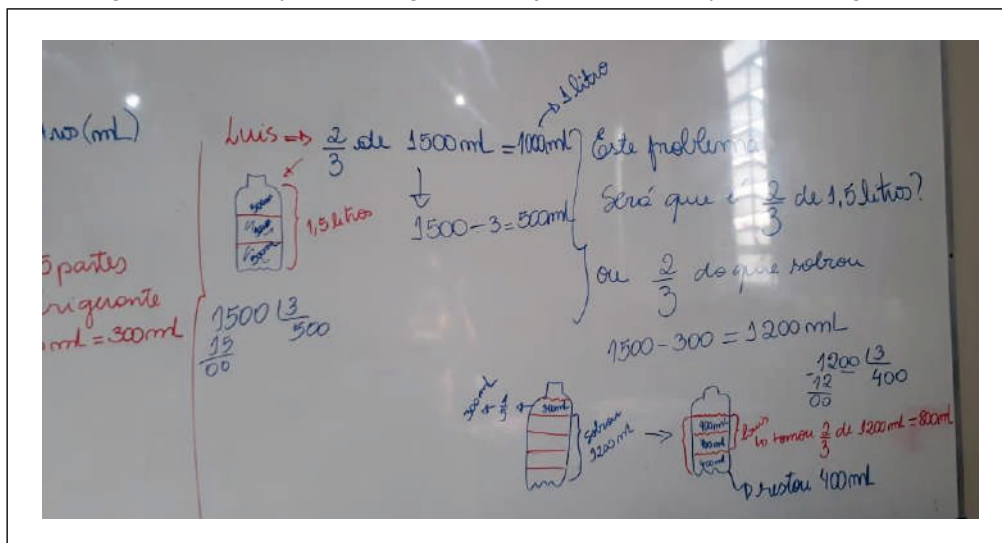 ros (mL)
5 partes
rigerante
mL = 300mL
Luis ⇒ 2/3 de 1500mL = 1000mL → 1 litro
500ml
500ml
1,5 litros
1500 ÷ 3 = 500mL
1500 | 3
15 500
00
Este problema
Será que é 2/3 de 1,5 litros?
ou 2/3 do que sobrou
1500 - 300 = 1200mL
1200 | 3
-12 400
00
300ml ← 1/5 ←
300ml
sobrou
1200mL
400ml
400ml
400ml
Luis
↳ tomou 2/3 de 1200mL = 800mL
→ restou 400mL